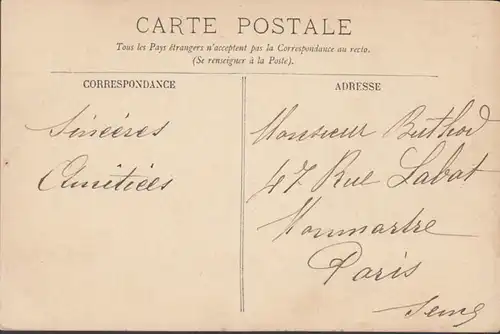 CARTE POSTALE
Tous les Pays étrangers n'acceptent pas la Correspondance au recto.
(Se renseigner à la Poste).
CORRESPONDANCE
Sincères
Amitiées
ADRESSE
Monsieur Buthod
47 Rue Labat
Monmartre
Paris
Seine